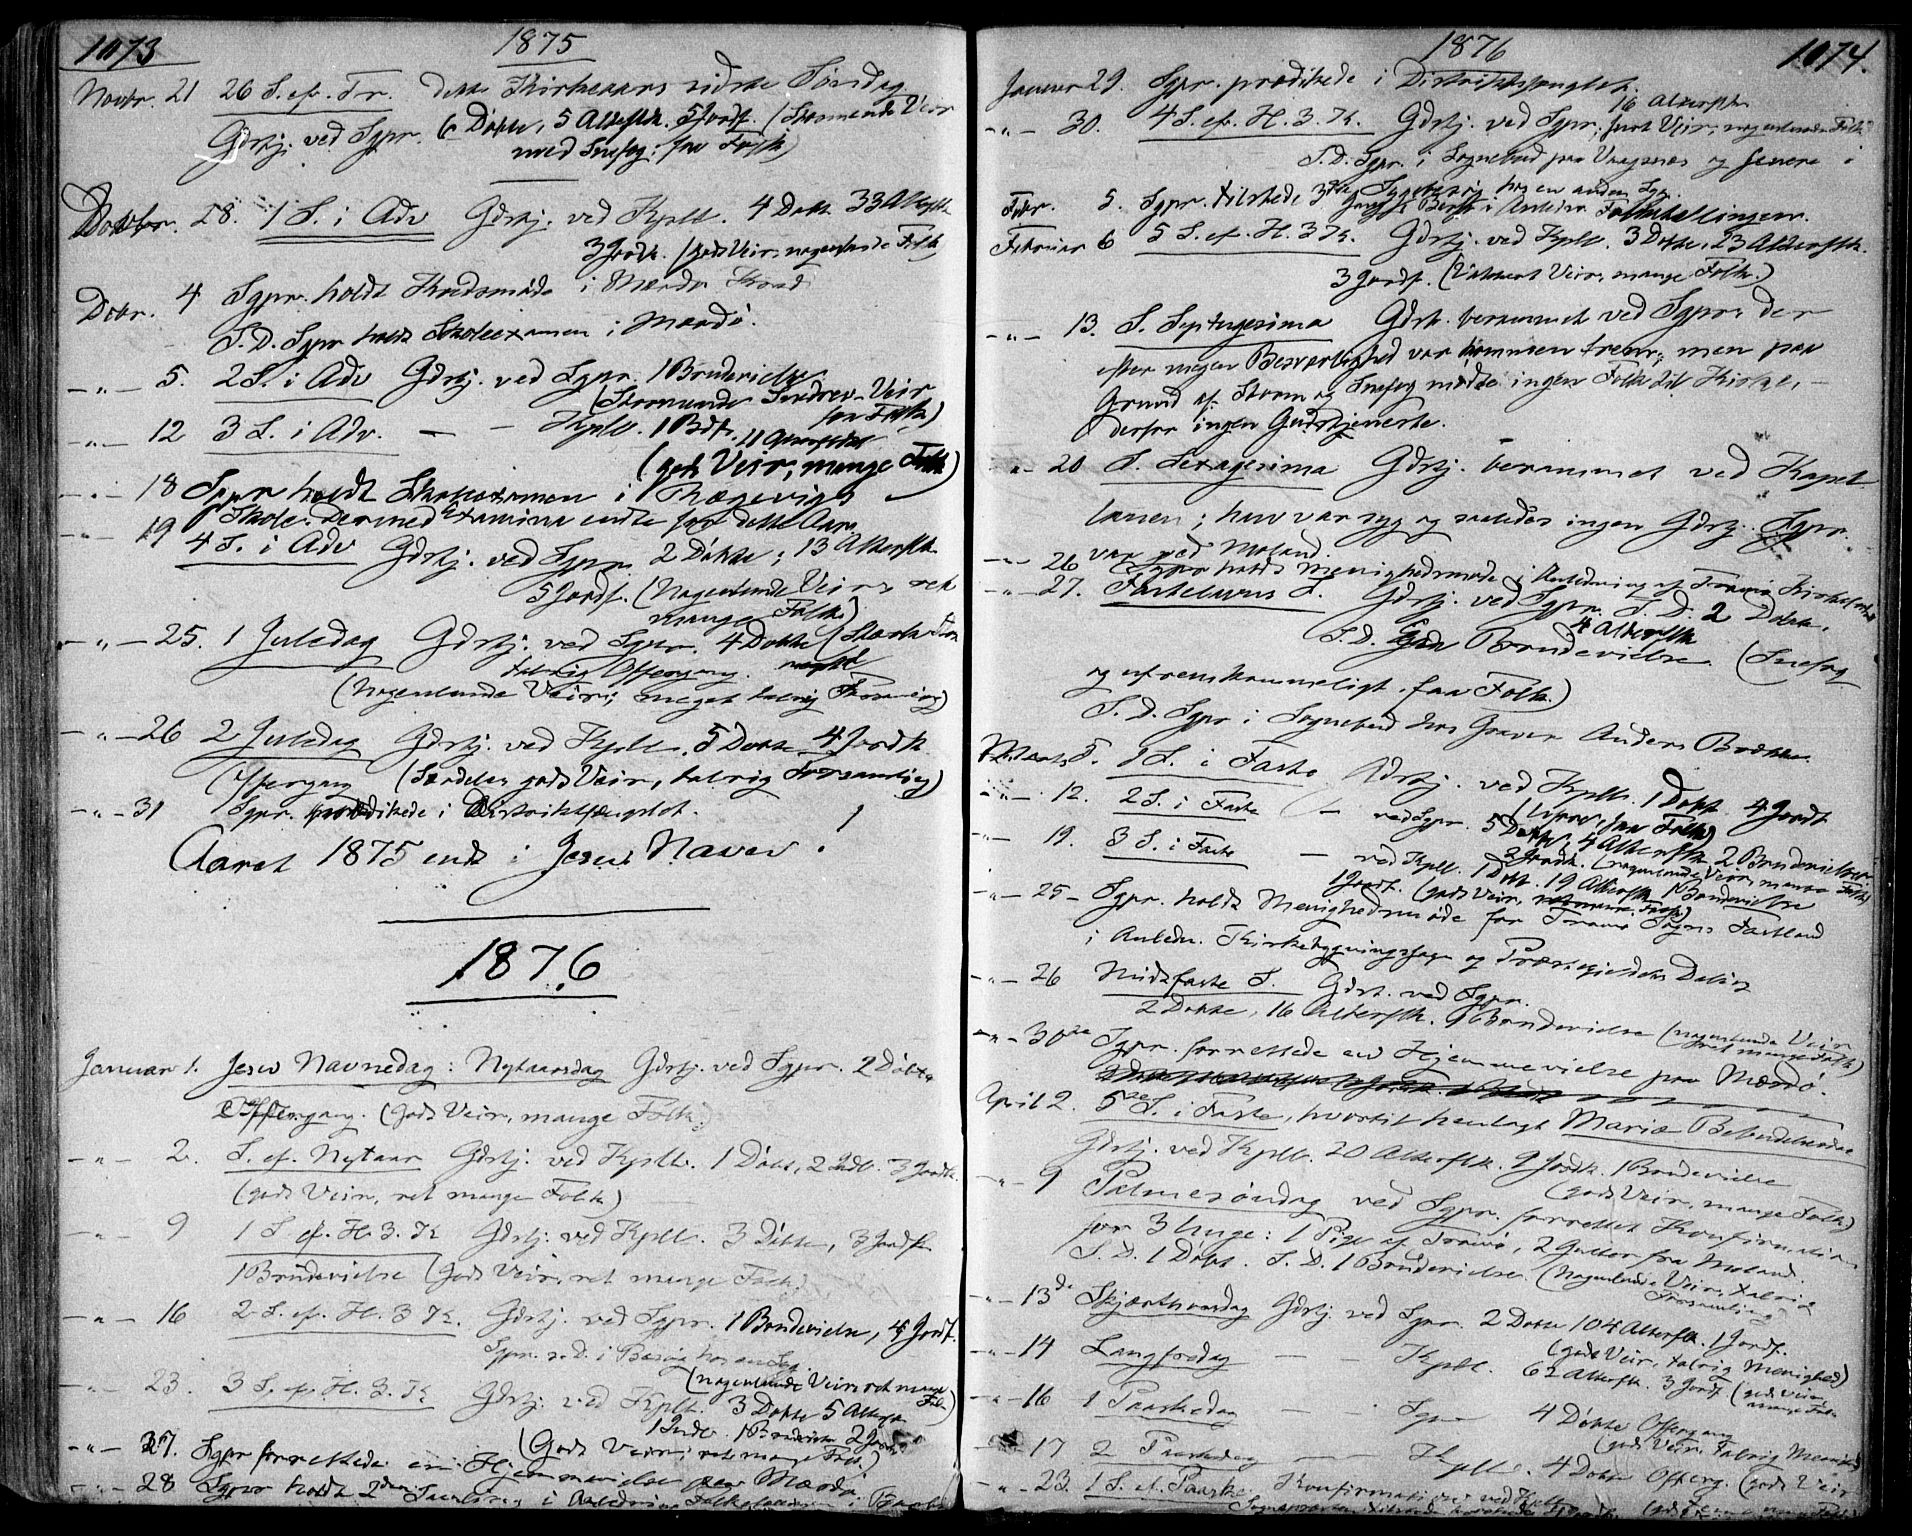 1073
1875
Novbr. 21 26 S. ef. Tr. dette Kirkeaars sidste Søndag
Gdstj. ved Sgpr. 6 Døbte, 5 Altersth. 5 Jordf. (Stormende Veir
med Snefog: faa Folk)
28. 1 S. i Adv Gdstj. ved Kpll. 4 Døbte 33 Altersth
3 Jordf. (godt Veir, nogenlunde Folk)
Dcbr. 4 Sgpr. holdt Kredsmøde i Mærdø Kreds
S. D. Sgpr holdt Skoleexamen i Mærdø.
-"- 5. 2 S. i Adv Gdstj. ved Sgpr. 1 Brudevielse
(Stormende Veir
faa Folk)
-"- 12 3 S. i Adv. — - Kpll. 1 Bdf. 11 Altersth
(godt Veir, mange Folk)
-"- 18 Sgpr holdt Skoleexamen i Rægevigs
Skole. Dermed Examina endte for dette Aar.
-"- 19 4 S. i Adv Gdstj. ved Sgpr. 2 Døbte; 13 Altersth.
5 Jordf. (Nogenlunde Veir, ret
mange Folk)
-"- 25. 1 Juledag Gdstj. ved Sgpr. 4 Døbte (Stærk
talrig Offergang.
(Nogenlunde Veir; meget talrig Forsamling)
-"- 26 2 Juledag Gdstj. ved Kpll. 5 Døbte 4 Jordf.
Offergang (Særdeles godt Veir, talrig Forsamling)
-"- 31 Sgpr. prædikede i Distriktsfængslet.
Aaret 1875 endt i Jesu Navn!
1876
Januar 1. Jesu Navnedag: Nytaarsdag Gdstj. ved Sgpr. 2 Døbte
Offergang. (Godt Veir, mange Folk)
-"- 2. S. ef. Nytaar Gdstj. ved Kpll. 1 Døbt, 2 Indl. 3 Jordf.
(godt Veir, ret mange Folk)
-"- 9 1 S. ef. H. 3. K Gdstj. ved Kpll. 3 Døbte, 3 Jordf.
1 Brudevielse (Godt Veir, ret mange Folk)
-"- 16 2 S. ef. H. 3 K. Gdstj. ved Sgpr. 1 Brudevielse, 4 Jordf.
Sgpr. s. D. i Besøg hos en Syg.
(nogenlunde Veir ret mange
Folk)
-"- 23. 3 S. ef. H. 3. K Gdstj. ved Kpll. 3 Døbte 5 Altersth
1 Indl. 1 Brudevielse 2 Jordf.
(Godt Veir, ret mange Folk)
-"- 27. Sgpr forrettede en Hjemmevielse paa Mærdø.
-"- 28 Sgpr holdt 2den i Anledning Folketællingen i
1876
1074.
Januar 29. Sgpr. prædikede i Distriktsfængslet.
16 Altersth
-"- 30. 4 S. ef. H. 3. K. Gdstj. ved Sgpr. Veir, nogenlunde Folk)
S. D. Sgpr. i Sognebud paa og senere i
Sygebesøg hos en anden Syg.
Febr. 5. Sgpr. tilstede 3die Gang i Anledn. Folketællingen.
Februar 6 5 S. ef. H. 3 K. Gdstj. ved Kpll. 3 Døbte, 23 Altersth.
3 Jordf. (Vakkert Veir, mange Folk.)
-"- 13. S. Septuagesima Gdstj. berammet ved Sgpr. der
efter megen Besværlighed var kommen frem; men paa
Grund af Storm og Snefog mødte ingen Folk til Kirke, -
derfor ingen Gudstjeneste.
-"- 20 S. Sexagesima Gdstj. berammet ved Kapel-
lanen; han var syg og saaledes ingen Gdstj. Sgpr.
var ved Moland.
-"- 26 Sgpr holdt Menighedsmøde i Anledning af Tromø Kirke
-"- 27. Fastelavns S. Gdstj. ved Sgpr. S. D. 2 Døbte,
4 Altersth
S. D. Brudevielse (Snefog
og ufremkommeligt. faa Folk)
S. D. Sgpr i Sognebud hos Graver Anders Brække.
Marts 5. 1 S. i Faste Gdstj. ved Kpll. 1 Døbt 4 Jordf
faa Folk)
-"- 12. 2 S. i Faste — ved Sgpr. 5 Døbte, 4 Altersth 2 Brudevielser
3 Jordf. (nogenlunde Veir, mange Folk)
-"- 19. 3 S. i Faste — ved Kpll. 1 Døbt. 19 Altersth 1 Brudevielse
1 Jordf. (godt Veir, Folk)
-"- 25- Sgpr. holdt Menighedsmøde for Tromø Sogns Fastland
i Anledn. Kirkebygningssagen og Præstegjeldets Deling
-"- 26 Midtfaste S. Gdst. ved Sgpr.
2 Døbte, 16 Altersth. 1 Brudevielse (nogenlunde Veir
ret mange Folk)
-"- 30te Sgpr. forrettede en Hjemmevielse paa Mærdø.
April 2. 5te S. i Faste, hvortil henlagt Mariæ Bebudelsesdag
Gdstj. ved Kpll. 20 Altersth. 9 Jordf. 1 Brudevielse
(godt Veir, mange Folk)
-"- 9 Palmesøndag ved Sgpr. forrettet Konfirmation
for 3 Unge: 1 Pige af Tromø, 2 Gutter fra Moland.
S. D. 1 Døbt. S. D. 1 Brudevielse (Nogenlunde Veir, talrig
Forsamling)
-"- 13de Skjærthorsdag Gdstj. ved Sgpr. 2 Døbte 104 Altersth. 1 Jordf.
(godt Veir, talrig Menighed)
-"- 14 Langfredag — — Kpll. 62 Altersth. 3 Jordf (godt Veir
mange Folk
-"- 16 1 Paaskedag — Sgpr 4 Døbte Offergang
(godt Veir. Talrig Menighed)
-"- 17 2 Paaskedag — Kpll. 4 Døbte Offerg. (godt Veir
-"- 23. 1 S. ef. Paaske. Konfirmation ved Kpll.